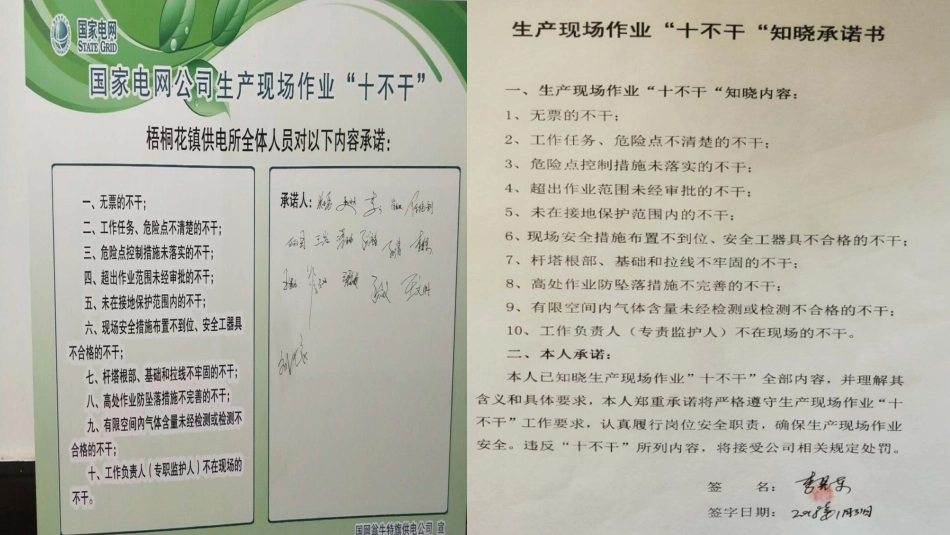 国家电网
STATE GRID
国家电网公司生产现场作业“十不干”
梧桐花镇供电所全体人员对以下内容承诺：
一、无票的不干；
二、工作任务、危险点不清楚的不干；
三、危险点控制措施未落实的不干；
四、超出作业范围未经审批的不干；
五、未在接地保护范围内的不干；
六、现场安全措施布置不到位、安全工器具
不合格的不干；
七、杆塔根部、基础和拉线不牢固的不干；
八、高处作业防坠落措施不完善的不干；
九、有限空间内气体含量未经检测或检测不
合格的不干；
十、工作负责人（专职监护人）不在现场的
不干。
承诺人：
国网翁牛特旗供电公司 宣
生产现场作业“十不干“知晓承诺书
一、生产现场作业“十不干“知晓内容：
1、无票的不干；
2、工作任务、危险点不清楚的不干；
3、危险点控制措施未落实的不干；
4、超出作业范围未经审批的不干；
5、未在接地保护范围内的不干；
6、现场安全措施布置不到位、安全工器具不合格的不干；
7、杆塔根部、基础和拉线不牢固的不干；
8、高处作业防坠落措施不完善的不干；
9、有限空间内气体含量未经检测或检测不合格的不干；
10、工作负责人（专责监护人）不在现场的不干。
二、本人承诺：
本人已知晓生产现场作业”十不干”全部内容，并理解其
含义和具体要求，本人郑重承诺将严格遵守生产现场作业“十
不干”工作要求，认真履行岗位安全职责，确保生产现场作业
安全。违反“十不干”所列内容，将接受公司相关规定处罚。
签 名：
签字日期：